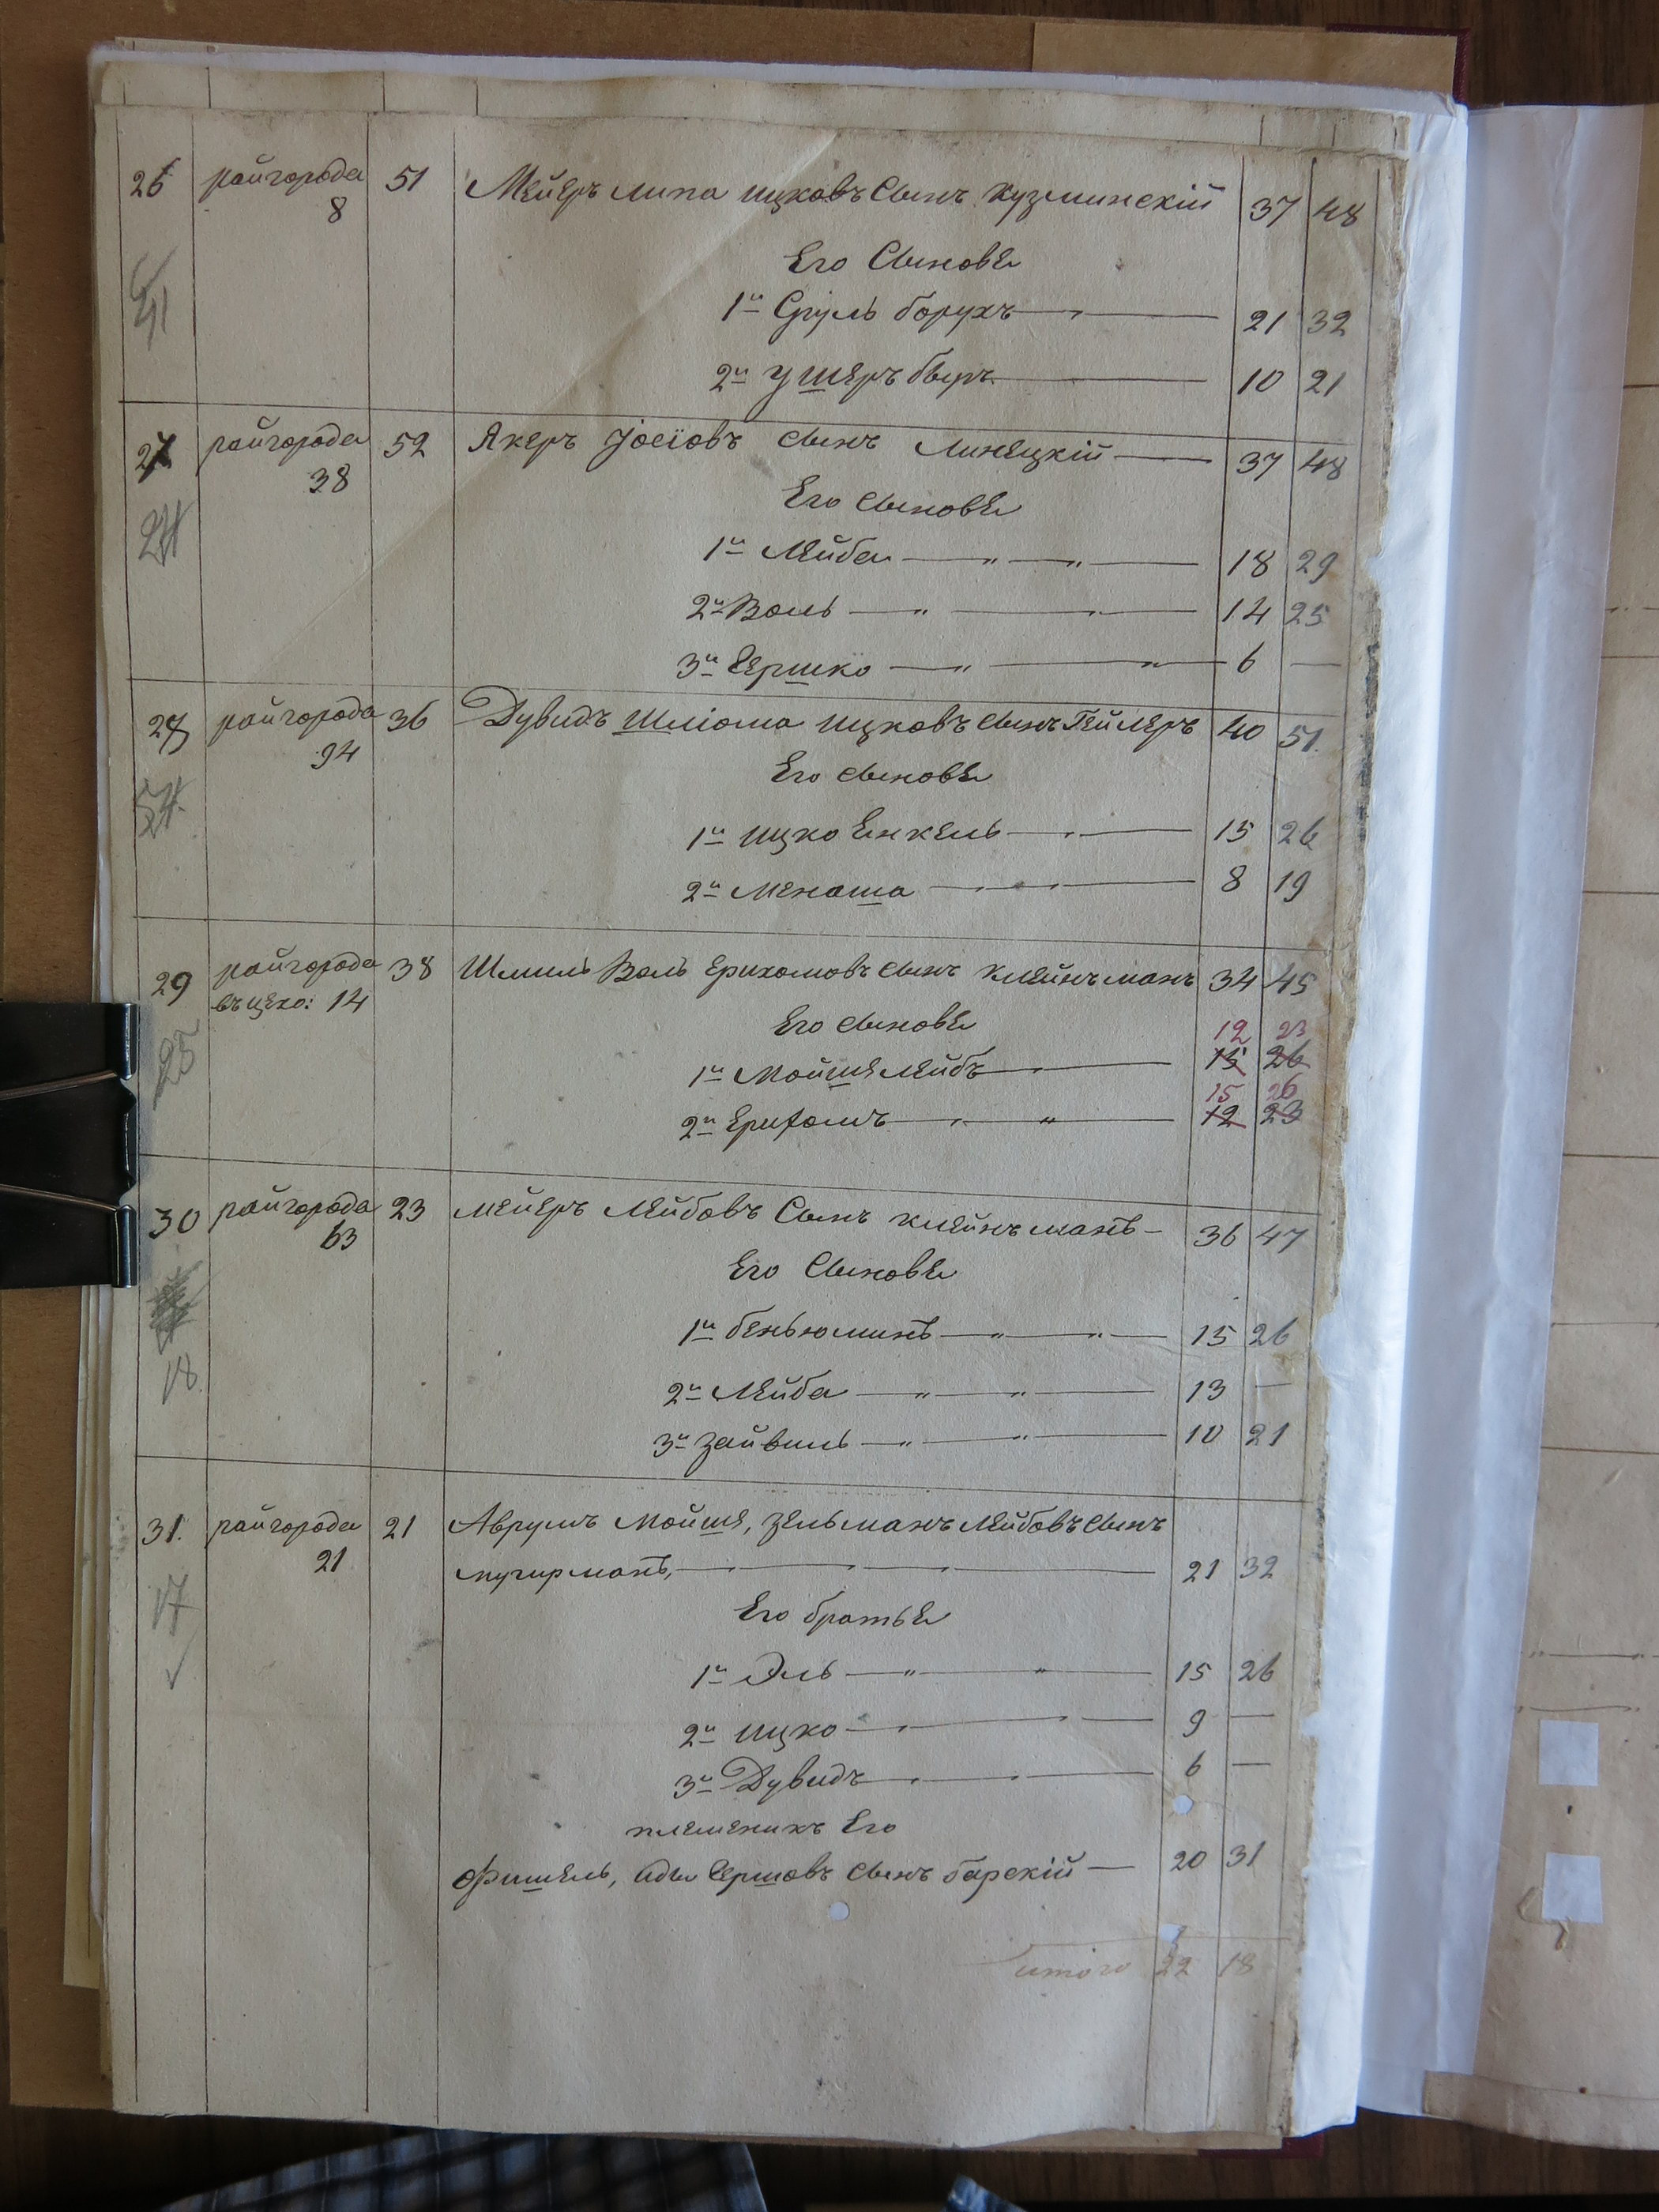 26 райгорода 51 Мейеръ липа ицковъ Сынъ Кузминскій 37 48
8
Его Сыновья
1й Сруль борухъ 21 32
2й Ушеръ беръ 10 21
27 райгорода 52 Якеръ Іосіовъ сынъ Линецкій 37 48
38
24
Его сыновья
1й Лейба 18 29
2й Воль 14 25
3й Гершко 6 —
28 райгорода 36 Дувидъ Шліома ицковъ сынъ Гейлеръ 40 51.
94
54
Его сыновья
1й ицко Енкель 15 26
2й Менаша 8 19
29 райгорода 38 Шмиль Воль Ерихомовъ сынъ Клейнъманъ 34 45
въ цехо: 14
25
Его сыновья
12 23
1й Мойше Лейбъ 15 26
15 26
2й Ерихомъ 12 23
30 райгорода 23 мейеръ Лейбовъ Сынъ клейнъманъ 36 47
63
Его Сыновья
1й беньюминъ 15 26
18.
2й Лейба 13 —
3й зайвиль 10 21
31. райгорода 21 Аврумъ Мойше, зельманъ Лейбовъ сынъ
21
лугирманъ, 21 32
17
Его братья
1й Эль 15 26
2й ицко 9 —
3й Дувидъ 6 —
племеникъ Его
Фишель, Адъ Гершовъ сынъ барскій 20 31
итого 22 18